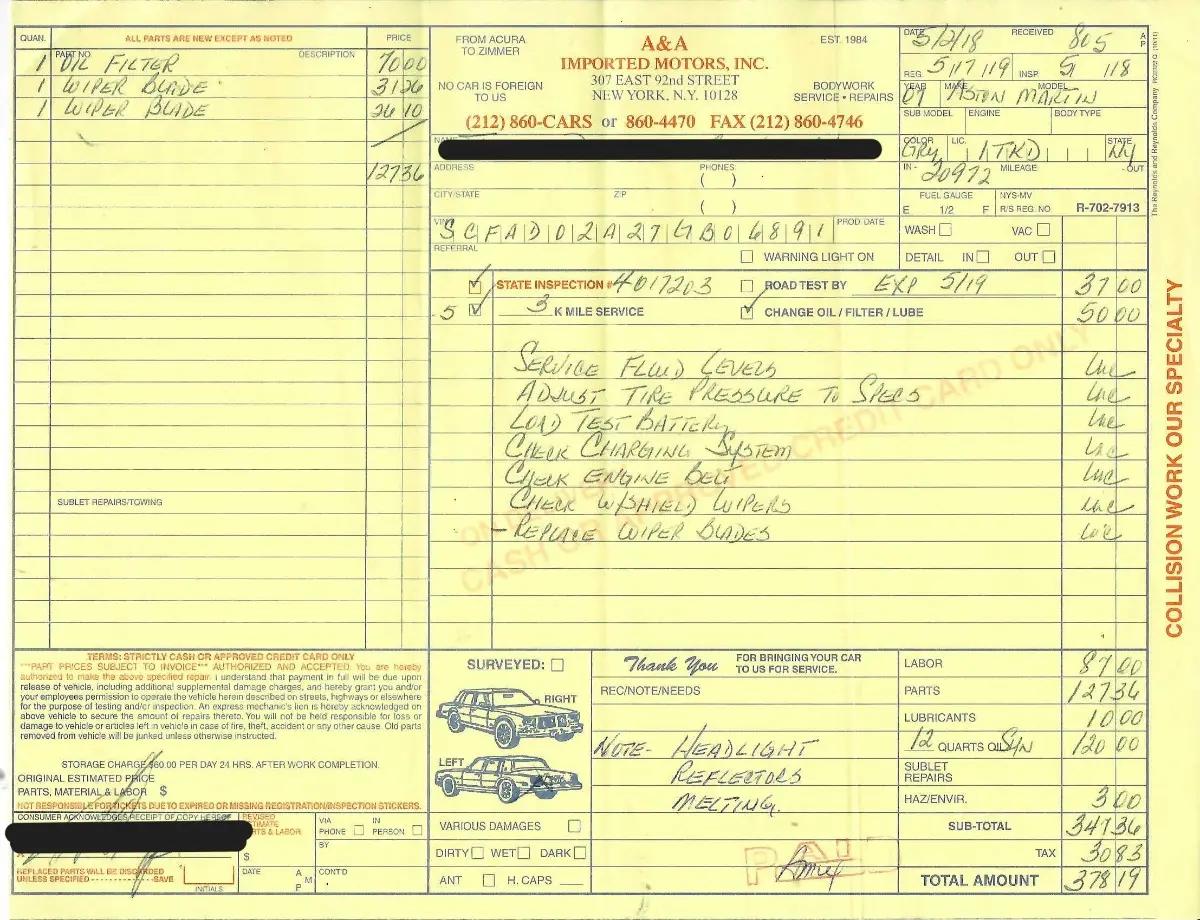 QUAN. ALL PARTS ARE NEW EXCEPT AS NOTED PRICE
PART NO. DESCRIPTION
1 OIL FILTER 70 00
1 WIPER BLADE 31 26
1 WIPER BLADE 26 10
127 36
SUBLET REPAIRS/TOWING
FROM ACURA TO ZIMMER
NO CAR IS FOREIGN TO US
A&A
IMPORTED MOTORS, INC.
307 EAST 92nd STREET
NEW YORK, N.Y. 10128
EST. 1984
BODYWORK
SERVICE • REPAIRS
(212) 860-CARS or 860-4470 FAX (212) 860-4746
NAME
ADDRESS PHONES
( )
CITY/STATE ZIP
( )
VIN SCFAD02A27GB06891 PROD DATE
REFERRAL
WARNING LIGHT ON
DATE 5/2/18 RECEIVED 805 A P
REG. 5/17/19 INSP. 5/ /18
YEAR 07 MAKE ASTON MARTIN MODEL
SUB MODEL ENGINE BODY TYPE
COLOR GRY LIC. 1TKD STATE NY
IN - 20972 MILEAGE - OUT
FUEL GAUGE NYS-MV
E 1/2 F R/S REG. NO R-702-7913
WASH VAC
DETAIL IN OUT
The Reynolds and Reynolds Company
STATE INSPECTION # 4017203 ROAD TEST BY EXP 5/19 37 00
5 3 K MILE SERVICE CHANGE OIL / FILTER / LUBE 50 00
SERVICE FLUID LEVELS INC
ADJUST TIRE PRESSURE TO SPECS INC
LOAD TEST BATTERY INC
CHECK CHARGING SYSTEM INC
CHECK ENGINE BELT INC
CHECK W/SHIELD WIPERS INC
- REPLACE WIPER BLADES INC
CASH OR APPROVED CREDIT CARD ONLY
COLLISION WORK OUR SPECIALTY
TERMS: STRICTLY CASH OR APPROVED CREDIT CARD ONLY
***PART PRICES SUBJECT TO INVOICE*** AUTHORIZED AND ACCEPTED. You are hereby
authorized to make the above specified repair. I understand that payment in full will be due upon
release of vehicle, including additional supplemental damage charges, and hereby grant you and/or
your employees permission to operate the vehicle herein described on streets, highways or elsewhere
for the purpose of testing and/or inspection. An express mechanic's lien is hereby acknowledged on
above vehicle to secure the amount of repairs thereto. You will not be held responsible for loss or
damage to vehicle or articles left in vehicle in case of fire, theft, accident or any other cause. Old parts
removed from vehicle will be junked unless otherwise instructed.
STORAGE CHARGE $60.00 PER DAY 24 HRS. AFTER WORK COMPLETION.
ORIGINAL ESTIMATED PRICE
PARTS, MATERIAL & LABOR $
NOT RESPONSIBLE FOR TICKETS DUE TO EXPIRED OR MISSING REGISTRATION/INSPECTION STICKERS.
CONSUMER ACKNOWLEDGES RECEIPT OF COPY HEREOF
REPLACED PARTS WILL BE DISCARDED
UNLESS SPECIFIED - - - - - - - - - - - SAVE
INITIALS
REVISED ESTIMATE PARTS & LABOR
$
DATE A M P
VIA PHONE IN PERSON
BY
CONT'D
SURVEYED:
RIGHT
LEFT
VARIOUS DAMAGES
DIRTY WET DARK
ANT H. CAPS
Thank You FOR BRINGING YOUR CAR TO US FOR SERVICE.
REC/NOTE/NEEDS
NOTE- HEADLIGHT
REFLECTORS
MELTING.
PAID
Amex
LABOR 87 00
PARTS 127 36
LUBRICANTS 10 00
12 QUARTS OIL SYN 120 00
SUBLET REPAIRS
HAZ/ENVIR. 3 00
SUB-TOTAL 347 36
TAX 30 83
TOTAL AMOUNT 378 19